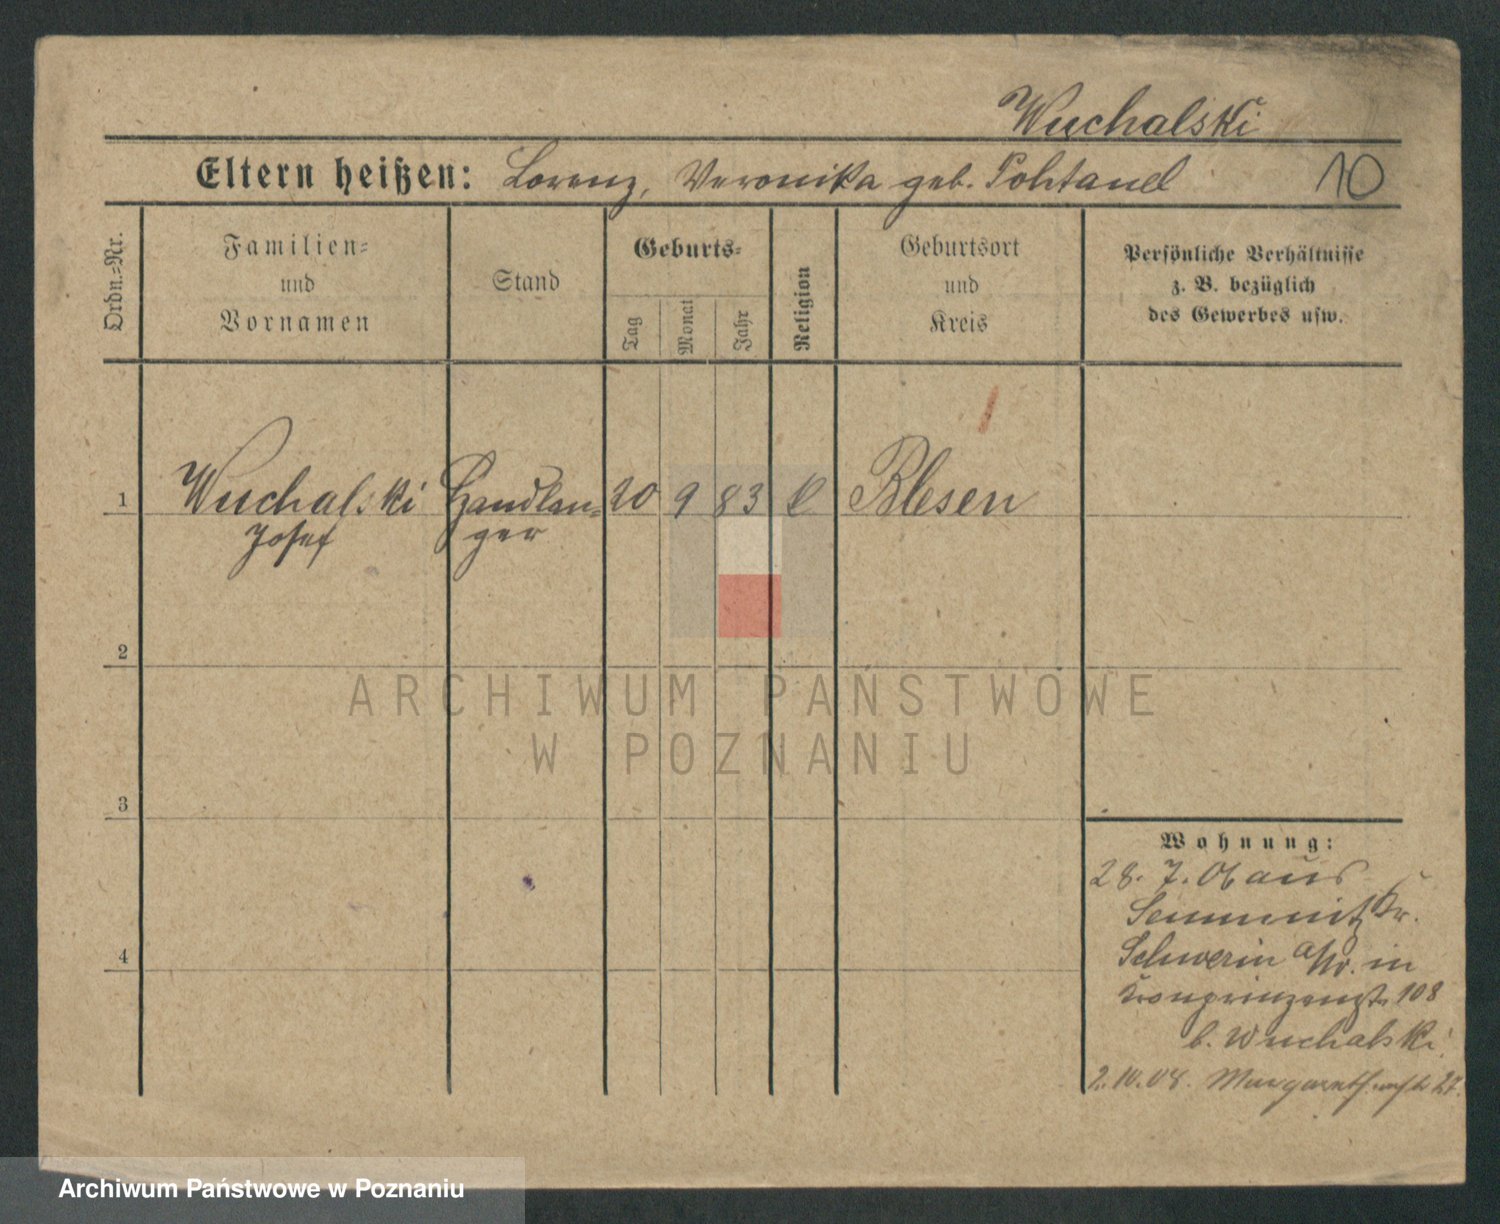 Wuchalski
Eltern heißen: Lorenz, Veronika geb.
10
Ordn.=Nr.
Familien=
und
Vornamen
Stand
Geburts=
Tag
Monat
Jahr
Religion
Geburtsort
und
Kreis
Persönliche Verhältnisse
z. B. bezüglich
des Gewerbes usw.
1 Wuchalski Handlan= 20 9 83 Blesen
Josef ger
2
3
4
Wohnung:
28. 7. 06 aus
Kr.
Schwerin a/W. in
Kronprinzenstr 108
b. Wuchalski
2.10.08. 27.
ARCHIWUM PAŃSTWOWE
W POZNANIU
Archiwum Państwowe w Poznaniu